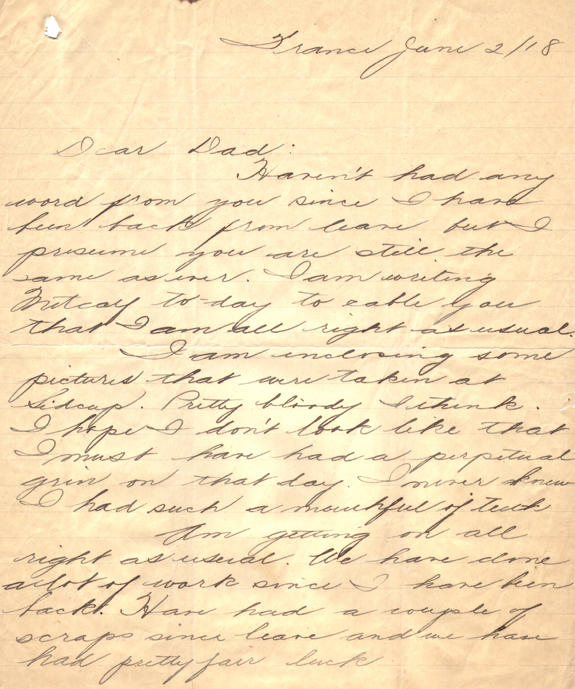 France June 2/18
Dear Dad:
Haven't had any
word from you since I have
been back from leave but I
presume you are still the
same as ever. I am writing
Metcalf to-day to cable you
that I am all right as usual.
I am inclosing some
pictures that were taken at
Sidcup. Pretty bloody I think.
I hope I don't look like that
I must have had a perpetual
grin on that day. I never knew
I had such a mouthful of teeth
Am getting on all
right as usual. We have done
a lot of work since I have been
back. Have had a couple of
scraps since leave and we have
had pretty fair luck